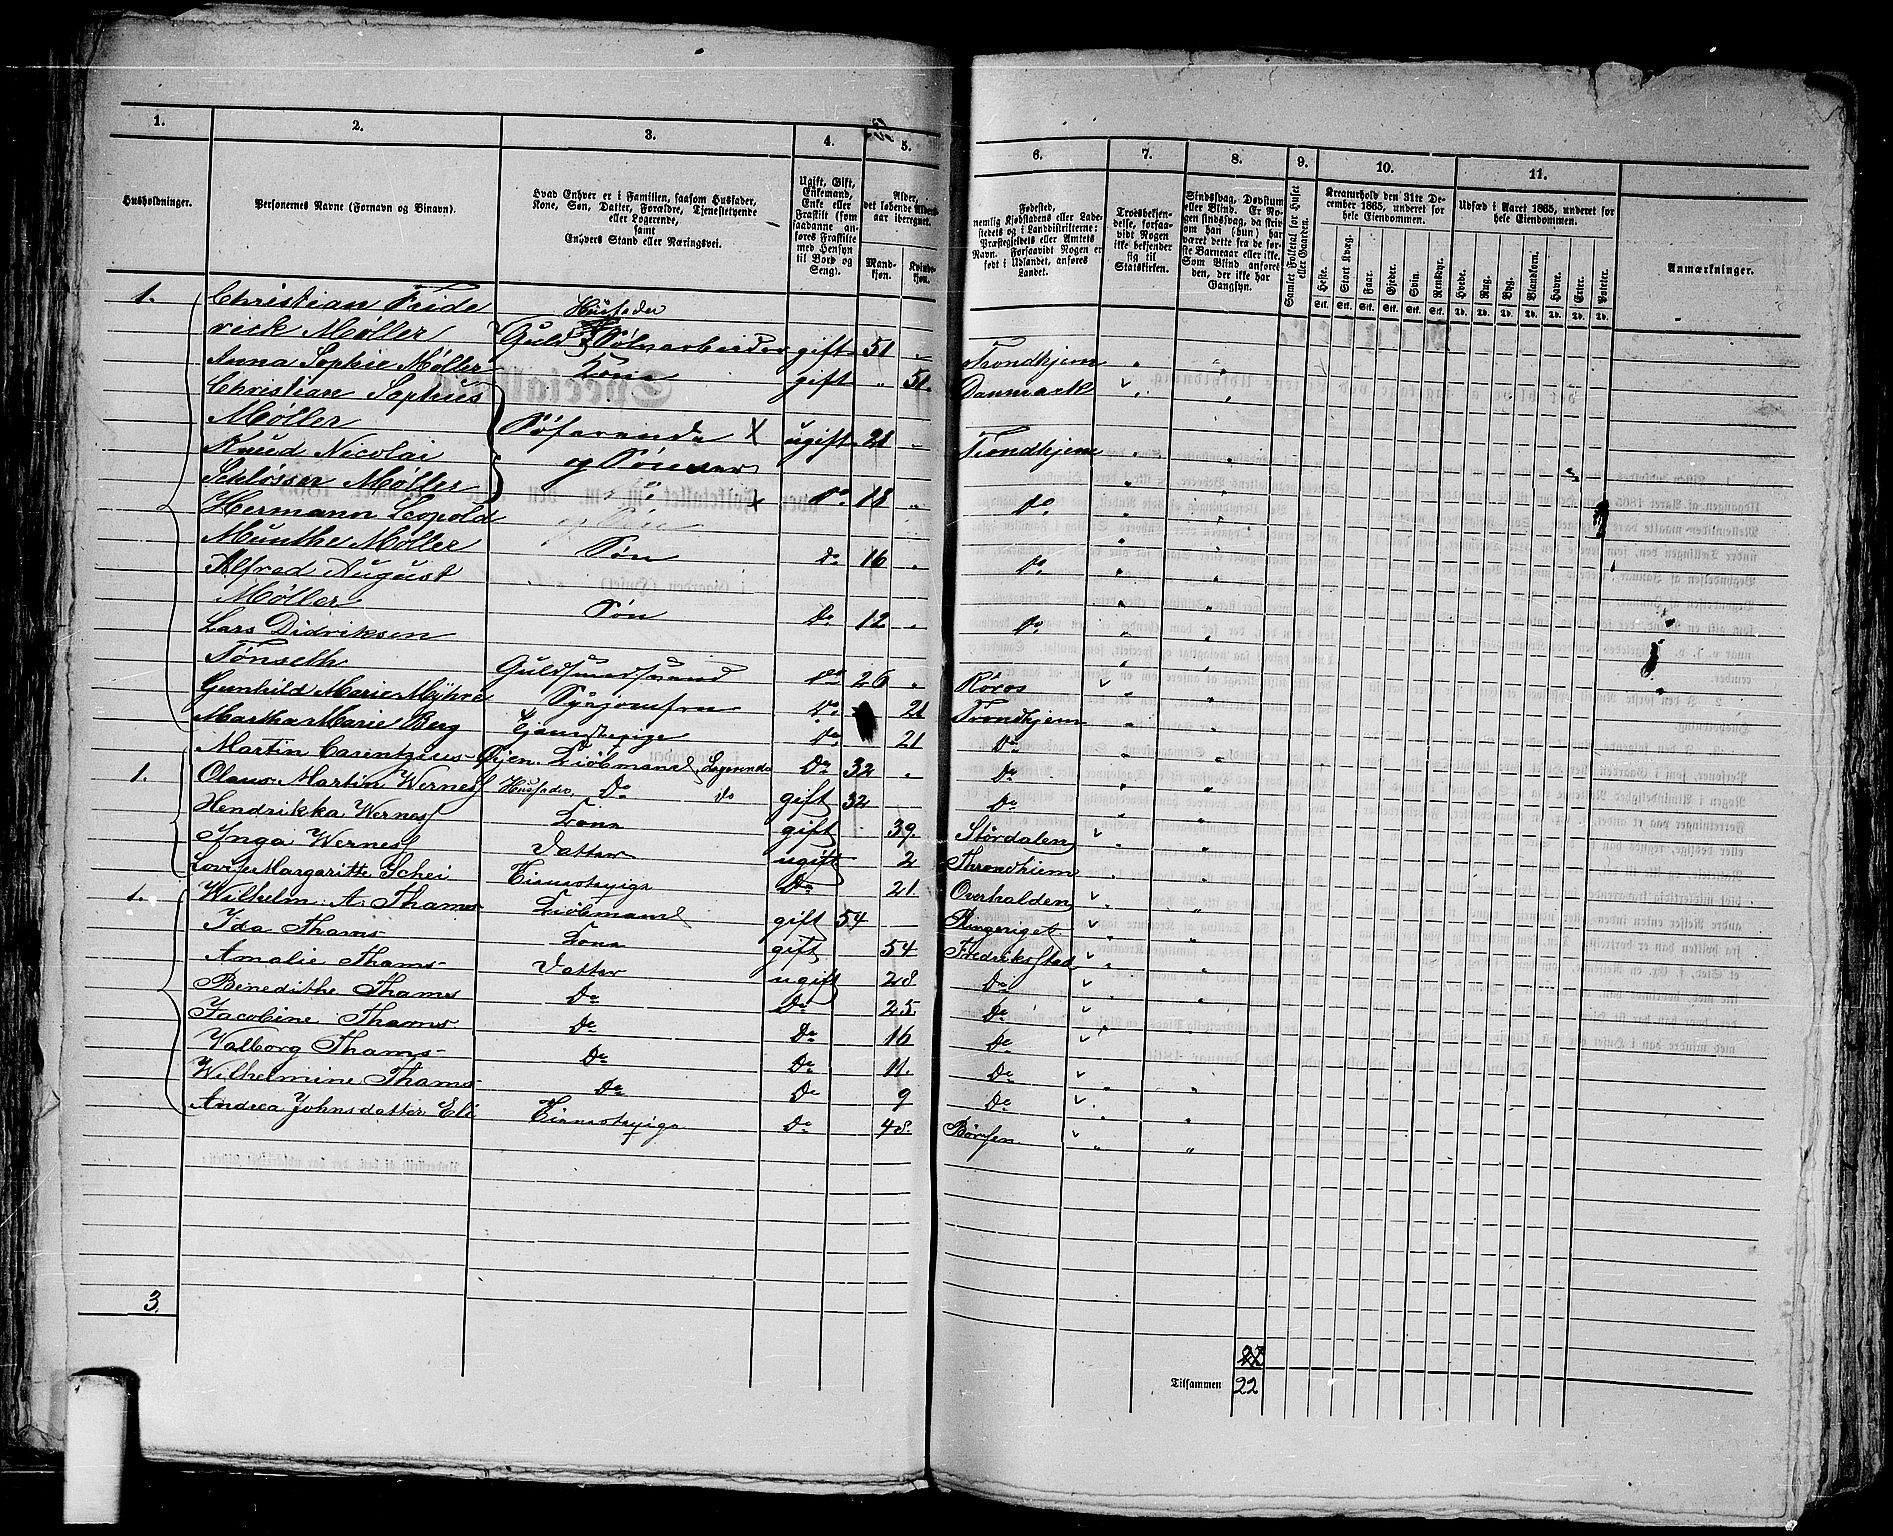 1. 2. 3. 4. 5. 6. 7. 8. 9. 10. 11.
Husholdninger.
Personernes Navne (Fornavn og Binavn).
Hvad Enhver er i Familien, saasom Husfader, Kone, Søn, Datter, Forældre, Tjenestetyende eller Logerende, samt Enhvers Stand eller Næringsvei.
Ugift, Gift, Enkemand, Enke eller Fraskilt (som saadanne anføres Fraskilte med Hensyn til Bord og Seng).
Alder, det løbende Alders-aar iberegnet.
Mandkjøn. Kvindekjøn.
Fødested, nemlig Kjøbstadens eller Ladestedets og i Landdistrikterne: Præstegjeldets eller Amtets Navn. Forsaavidt Nogen er født i Udlandet, anføres Landet.
Troesbekjendelse, forsaavidt Nogen ikke bekjender sig til Statskirken.
Sindssvag, Døvstum eller Blind. Er Nogen sindssvag, da skrives om han (hun) har været dette fra de første Barneaar eller ikke. Som Blind anføres den, der ikke har Gangsyn.
Samlet Folketal for Huset eller Gaarden.
Kreaturhold den 31te December 1865, underet for hele Eiendommen.
Heste. Stort Kvæg. Faar. Gjeder. Svin. Rensdyr.
Udsæd i Aaret 1865, underet for hele Eiendommen.
Hvede. Rug. Byg. Blandkorn. Havre. Erter. Poteter.
Anmærkninger.
Stk. Stk. Stk. Stk. Stk. Stk. Td. Td. Td. Td. Td. Td. Td.
1. Christian Fride Husfader
rick Møller Guld & Sølvarbeider gift 51 „ Trondhjem
Anna Sophie Møller Kone gift „ 51. Danmark
Christian Sophus
Møller Søfarende X ugift 21 „ Trondhjem
Knud Nicolai og Sønner
Schlösser Møller X Do 18 „ Do
Hermann Leopold
Munthe Møller Søn Do 16 „ Do
Alfred August
Møller Søn Do 12 „ Do
Lars Didriksen
Tønseth Guldsmedsvend Do 26 „ Røros
Gunhild Marie Myhre Syjomfru Do 21 Trondhjem
Martha Marie Berg Tjenestepige Do 21 Do
Martin Carentzius Øyen. Kjöbmand, Logerende Do 32 „ Do
1. Olaus Martin Wernes Husfader, Do do gift 32 Do
Hendrikka Wernes Kone gift 39. Stördalen
Inga Wernes Datter ugift 2 Throndhiem
Lovise Margaritte Schei Tienestepige Do 21. Overhalden
1. Wilhelm A. Thams Kiöbmand gift 54 Ringeriget
Ida Thams Kone gift 54 Fredrikstad
Amalie Thams Datter ugift 28 Do
Benedithe Thams Do Do 25. Do
Jacobine Thams Do Do 16 Do
Valborg Thams Do Do 11. Do
Wilhelmine Thams Do Do 9 Do
Andrea Johnsdatter Eli Tienestepige Do 48. Börsen
3.
Tilsammen 22